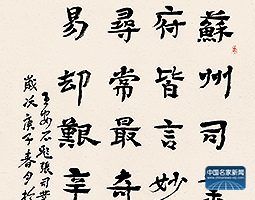 蘇州司
府皆言妙
尋常最奇
易却艱辛
王安石題張司業
歲次庚子春月於
中国名家新闻